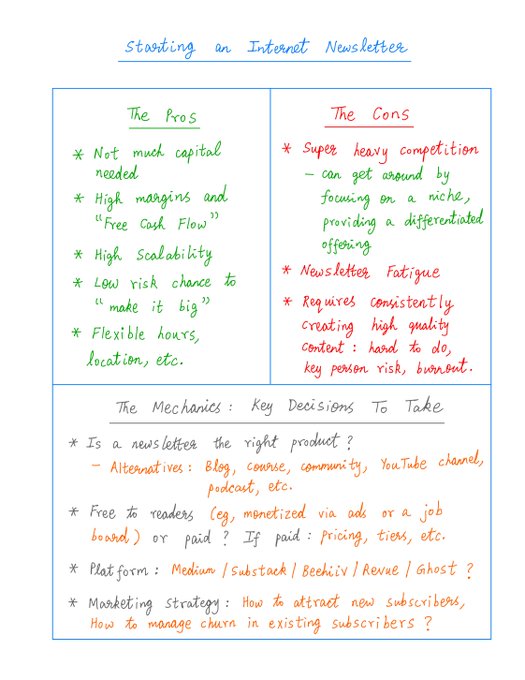 Starting an Internet Newsletter
The Pros
* Not much capital
needed
* High margins and
"Free Cash Flow"
* High Scalability
* Low risk chance to
"make it big"
* Flexible hours,
location, etc.
The Cons
* Super heavy competition
- can get around by
focusing on a niche,
providing a differentiated
offering
* Newsletter Fatigue
* Requires consistently
creating high quality
content : hard to do,
key person risk, burnout.
The Mechanics : Key Decisions To Take
* Is a newsletter the right product ?
- Alternatives : Blog, course, community, YouTube channel,
podcast, etc.
* Free to readers (eg, monetized via ads or a job
board) or paid ? If paid : pricing, tiers, etc.
* Platform : Medium / Substack / Beehiiv / Revue / Ghost ?
* Marketing Strategy : How to attract new subscribers,
How to manage churn in existing subscribers ?